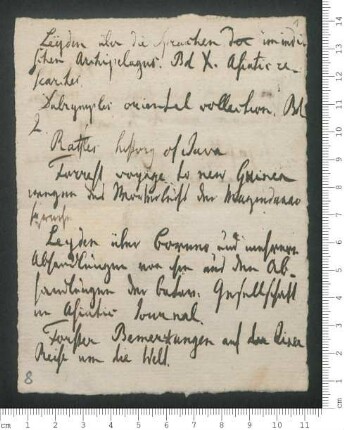 1
Leyden über die Sprachen des im indi-
schen Archipelagus. Bd X. Asiatic re-
searches
Dalrymples oriental collection. Bd
2
Raffles history of Java
Forrest voyage to new Guinea
wegen des der Magindanao
Sprache
Leyden über Borneo und mehrere
Abhandlungen von ihm aus den Ab-
handlungen der batav. Gesellschaft
im Asiatic Journal.
Forster Bemerkungen auf einer
Reise um die Welt.
8
cm 1 2 3 4 5 6 7 8 9 10 11
cm 1 2 3 4 5 6 7 8 9 10 11 12 13 14